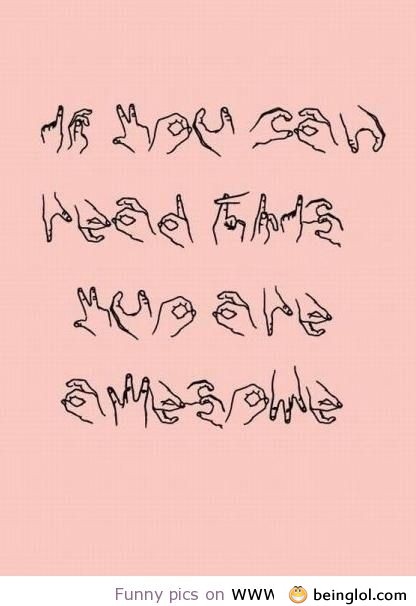 if you can
read this
yuo are
awesome
Funny pics on WWW beinglol.com